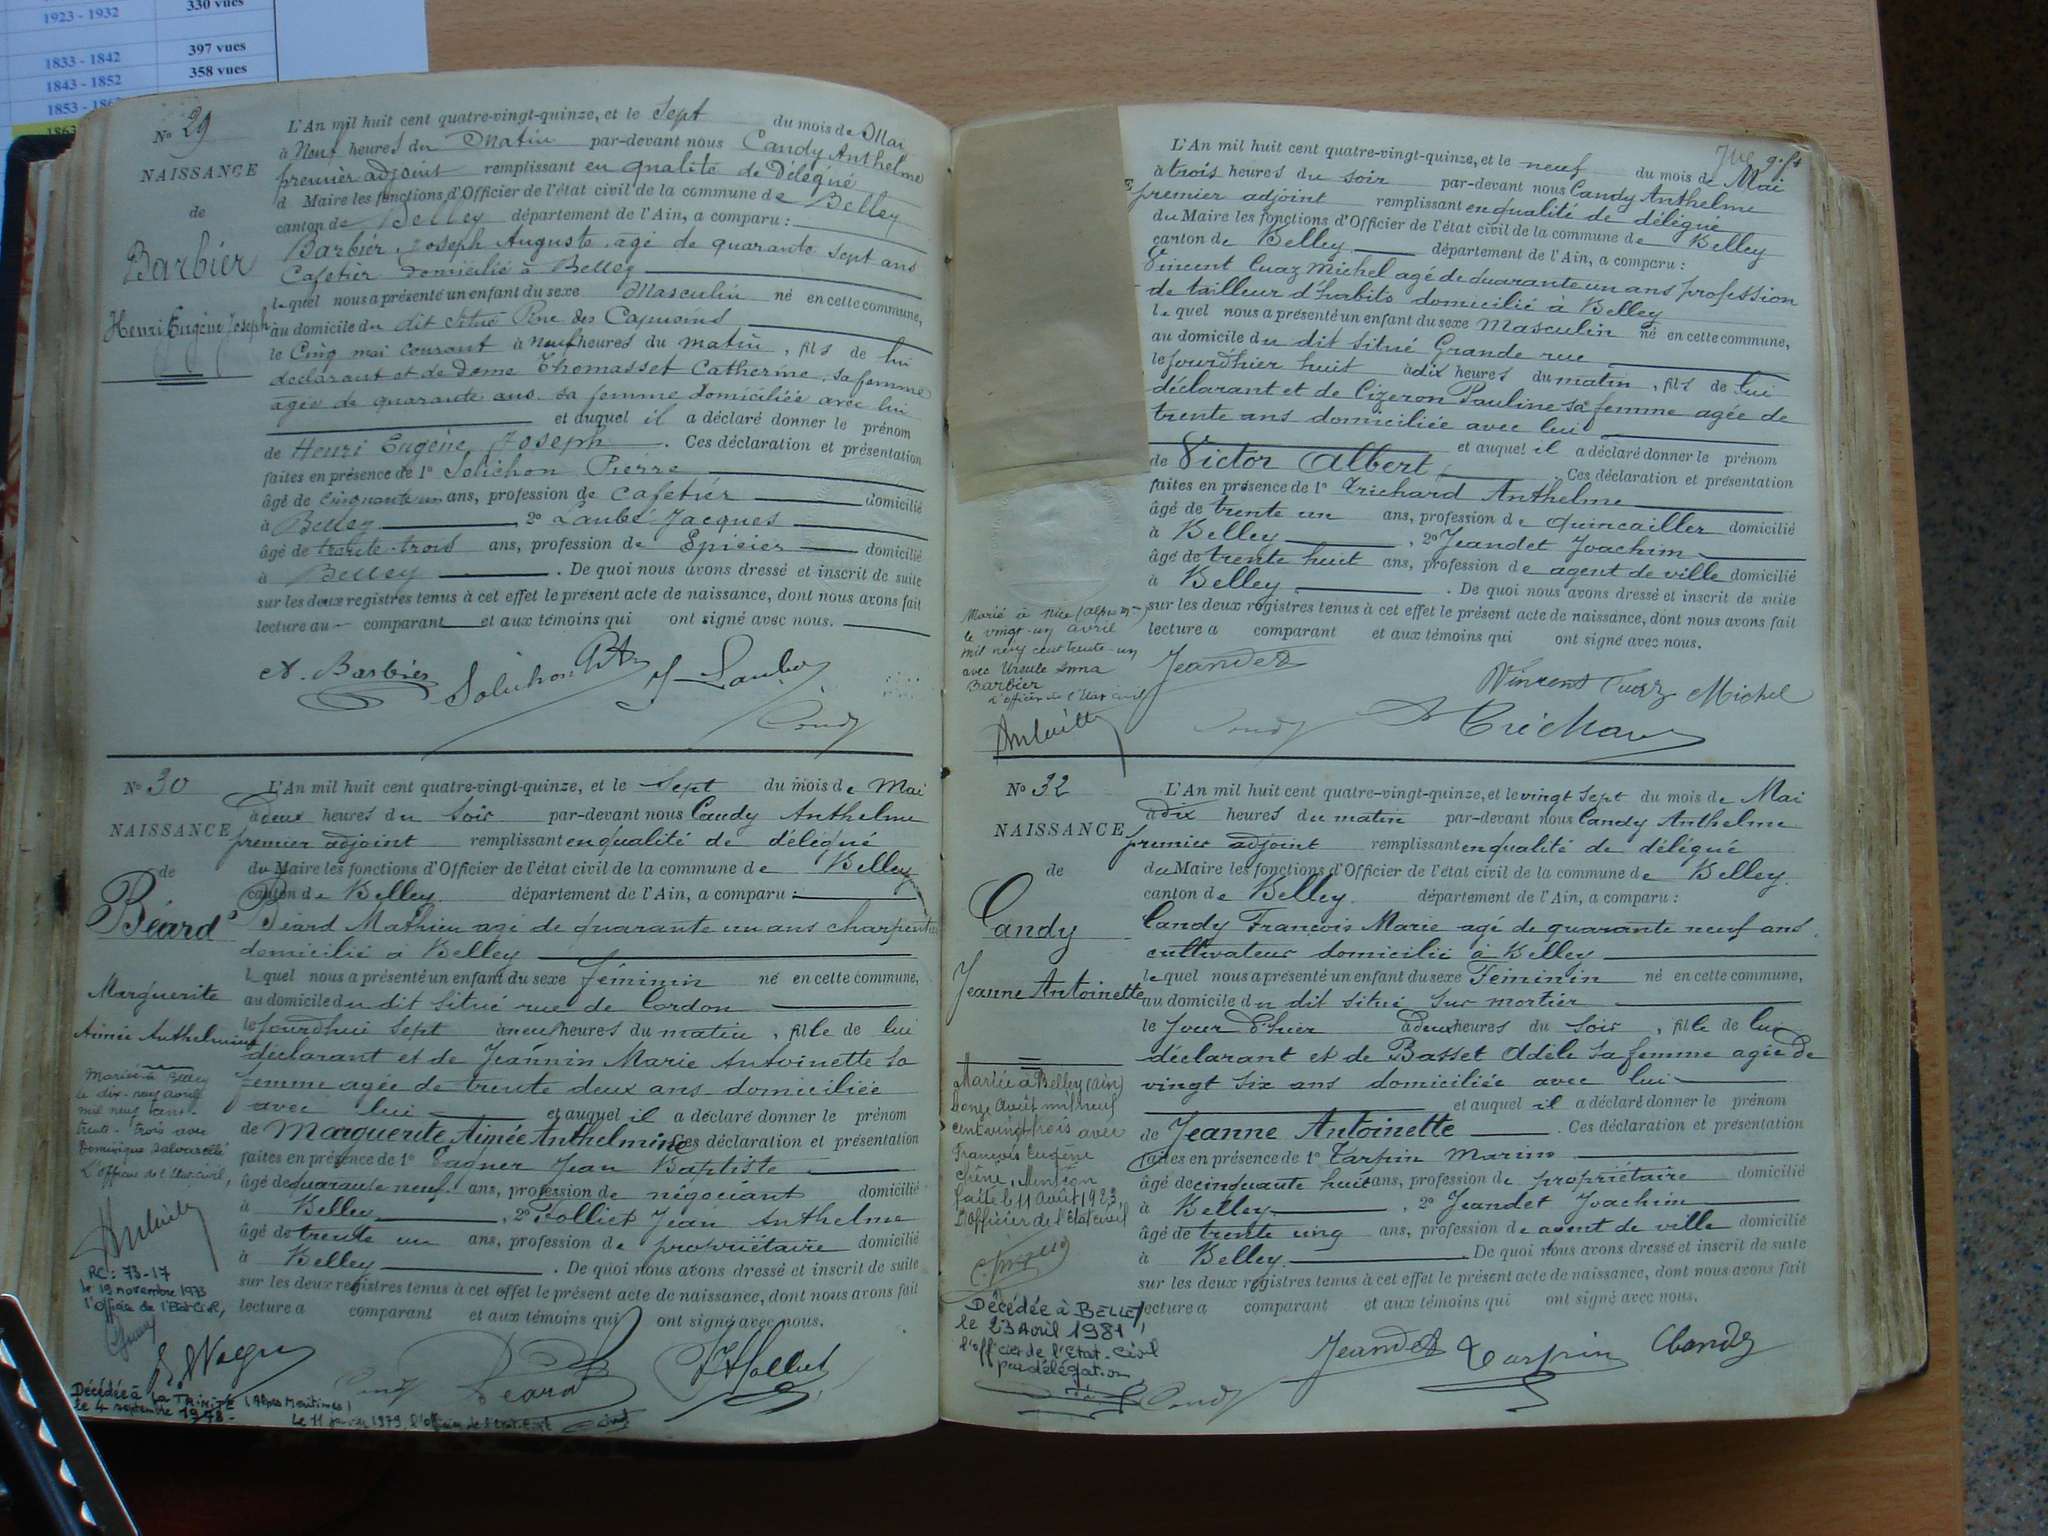 1923 - 1932 330 vues
1833 - 1842 397 vues
1843 - 1852 358 vues
1853 -
N° 29
NAISSANCE
de
Barbier
Henri Eugène Joseph
L'An mil huit cent quatre-vingt-quinze, et le Sept du mois de Mai
à Neuf heures du Matin par-devant nous Candy Anthelme
premier adjoint remplissant en qualité de Délégué
d Maire les fonctions d'Officier de l'état civil de la commune de Belley
canton de Belley département de l'Ain, a comparu :
Barbier Joseph Auguste agé de quarante sept ans
Cafetier domicilié à Belley
lequel nous a présenté un enfant du sexe Masculin né en cette commune,
au domicile du dit Situé Rue des Capucins
le Cinq mai courant à neuf heures du matin, fils de lui
déclarant et de Dame Thomasset Catherine, sa femme
agée de quarante ans sa femme domiciliée avec lui
et auquel il a déclaré donner le prénom
de Henri Eugène Joseph. Ces déclaration et présentation
faites en présence de 1° Solichon Pierre
âgé de cinquante un ans, profession de cafetier domicilié
à Belley, 2° Laubé Jacques
âgé de trente-trois ans, profession de Epicier domicilié
à Belley. De quoi nous avons dressé et inscrit de suite
sur les deux registres tenus à cet effet le présent acte de naissance, dont nous avons fait
lecture au comparant et aux témoins qui ont signé avec nous.
A. Barbier Solichon J Laubé
Candy
N° 30
NAISSANCE
de
Béard
Marguerite
Aimée Anthelmine
L'An mil huit cent quatre-vingt-quinze, et le Sept du mois de Mai
à deux heures du soir par-devant nous Candy Anthelme
premier adjoint remplissant en qualité de délégué
du Maire les fonctions d'Officier de l'état civil de la commune de Belley
canton de Belley département de l'Ain, a comparu :
Béard Mathieu agé de quarante un ans charpentier
domicilié à Belley
lequel nous a présenté un enfant du sexe féminin né en cette commune,
au domicile du dit situé rue de Cordon
le jourdhui sept à neuf heures du matin, fille de lui
déclarant et de Jeannin Marie Antoinette sa
femme agée de trente deux ans domiciliée
avec lui et auquel il a déclaré donner le prénom
de Marguerite Aimée Anthelmine Ces déclaration et présentation
faites en présence de 1° Vagner Jean Baptiste
âgé de quarante neuf ans, profession de négociant domicilié
à Belley, 2° Folliet Jean Anthelme
âgé de trente un ans, profession de propriétaire domicilié
à Belley. De quoi nous avons dressé et inscrit de suite
sur les deux registres tenus à cet effet le présent acte de naissance, dont nous avons fait
lecture a comparant et aux témoins qui ont signé avec nous.
Mariée à Belley
le dix-neuf avril
mil neuf cent
trente-trois avec
Dominique
L'officier de l'état civil,
RC: 73-17
le 19 novembre 1973
l'Officier de l'Etat Civil,
Vagner Candy Béard Folliet
Décédée à La TRINITE (Alpes Maritimes)
le 4 septembre 1978-
Le 11 janvier 1979 l'officier de l'Etat Civil
L'An mil huit cent quatre-vingt-quinze, et le neuf du mois de Mai
à trois heures du soir par-devant nous Candy Anthelme
premier adjoint remplissant en qualité de délégué
du Maire les fonctions d'Officier de l'état civil de la commune de Belley
canton de Belley département de l'Ain, a comparu :
Vincent Cuaz Michel agé de quarante un ans profession
de tailleur d'habits domicilié à Belley
lequel nous a présenté un enfant du sexe Masculin né en cette commune,
au domicile du dit situé Grande rue
le jourdhier huit à dix heures du matin, fils de lui
déclarant et de Cizeron Pauline sa femme agée de
trente ans domiciliée avec lui
et auquel il a déclaré donner le prénom
de Victor Albert. Ces déclaration et présentation
faites en présence de 1° Trichard Anthelme
âgé de trente un ans, profession de quincailler domicilié
à Belley, 2° Jeandet Joachim
âgé de trente huit ans, profession de agent de ville domicilié
à Belley. De quoi nous avons dressé et inscrit de suite
sur les deux registres tenus à cet effet le présent acte de naissance, dont nous avons fait
lecture a comparant et aux témoins qui ont signé avec nous.
Marié à Nice (Alpes Mmes)
le vingt-un avril
mil neuf cent trente-un
avec Ursule Anna
Barbier
L'officier de l'état civil
Jeandet Vincent Cuaz Michel
Candy A Trichard
N° 32
NAISSANCE
de
Candy
Jeanne Antoinette
L'An mil huit cent quatre-vingt-quinze, et le vingt sept du mois de Mai
à dix heures du matin par-devant nous Candy Anthelme
premier adjoint remplissant en qualité de délégué
du Maire les fonctions d'Officier de l'état civil de la commune de Belley.
canton de Belley. département de l'Ain, a comparu :
Candy François Marie agé de quarante neuf ans
cultivateur domicilié à Belley
lequel nous a présenté un enfant du sexe Féminin né en cette commune,
au domicile du dit situé sur mortier
le jour d'hier à deux heures du soir, fille de lui
déclarant et de Basset Adèle sa femme agée de
vingt six ans domiciliée avec lui
et auquel il a déclaré donner le prénom
de Jeanne Antoinette. Ces déclaration et présentation
faites en présence de 1° Tarpin Marin
âgé de cinquante huit ans, profession de propriétaire domicilié
à Belley, 2° Jeandet Joachim
âgé de trente ung ans, profession de agent de ville domicilié
à Belley. De quoi nous avons dressé et inscrit de suite
sur les deux registres tenus à cet effet le présent acte de naissance, dont nous avons fait
lecture a comparant et aux témoins qui ont signé avec nous.
Mariée à Belley (Ain)
le onze Août mil neuf
cent vingt trois avec
François Eugène
Chêne. Mention
faite le 11 août 1923
L'officier de l'état civil
Décédée à BELLEY
le 23 Avril 1981,
l'officier de l'Etat-Civil
par délégation,
Candy Jeandet Tarpin Candy